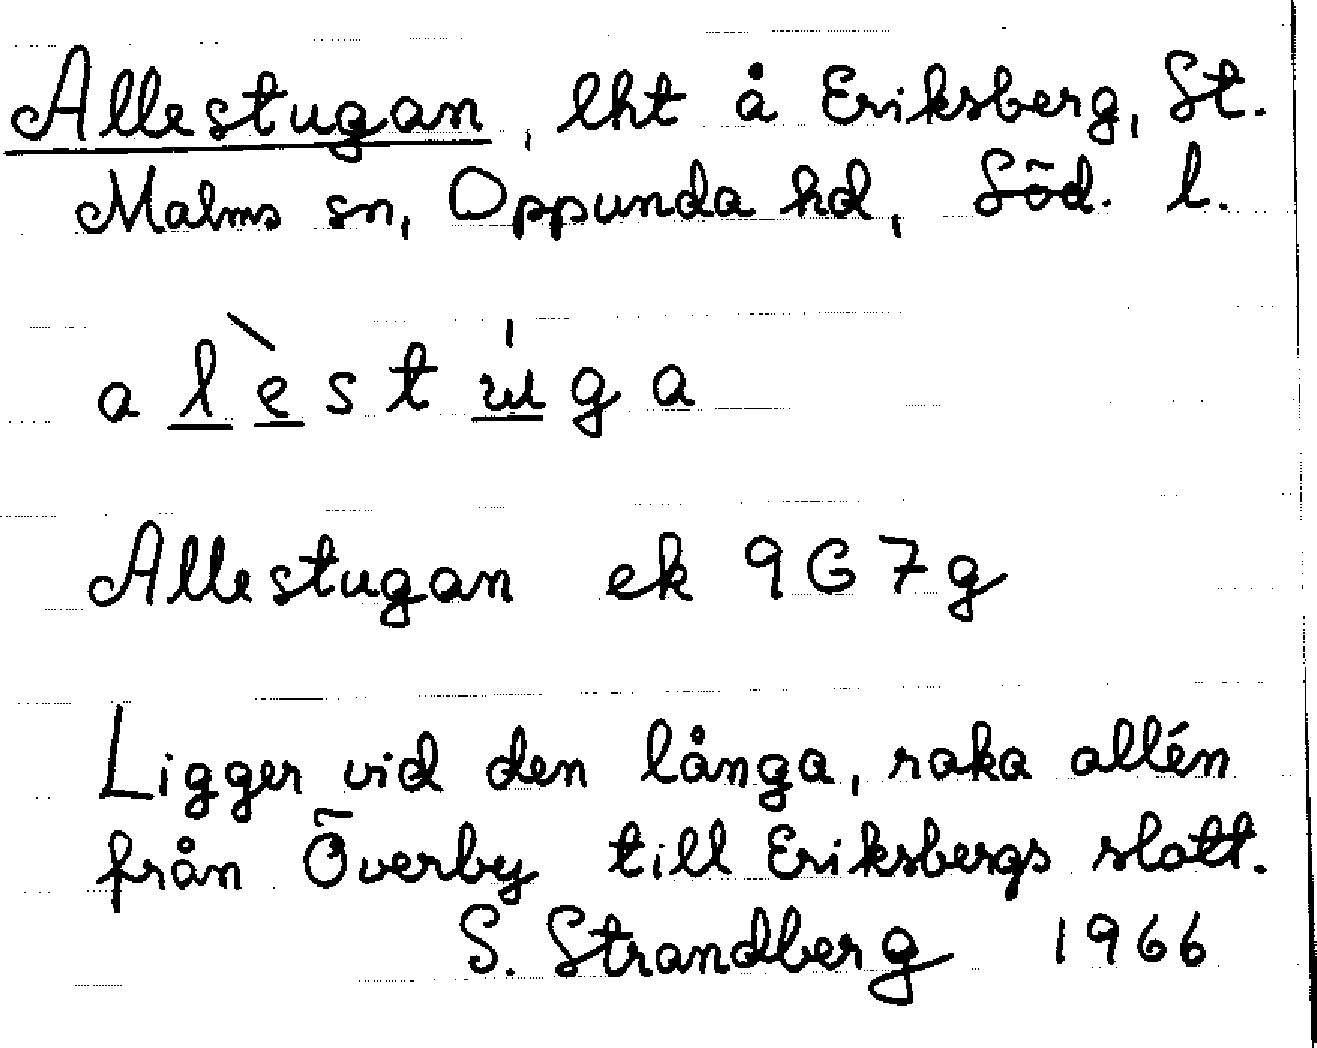 Allestugan, lht å Eriksberg, St.
Malms sn, Oppunda hd, Söd. l.
alèstu̍ga
Allestugan ek 9G7g
Ligger vid den långa, raka allén
från Överby till Eriksbergs slott.
S. Strandberg 1966